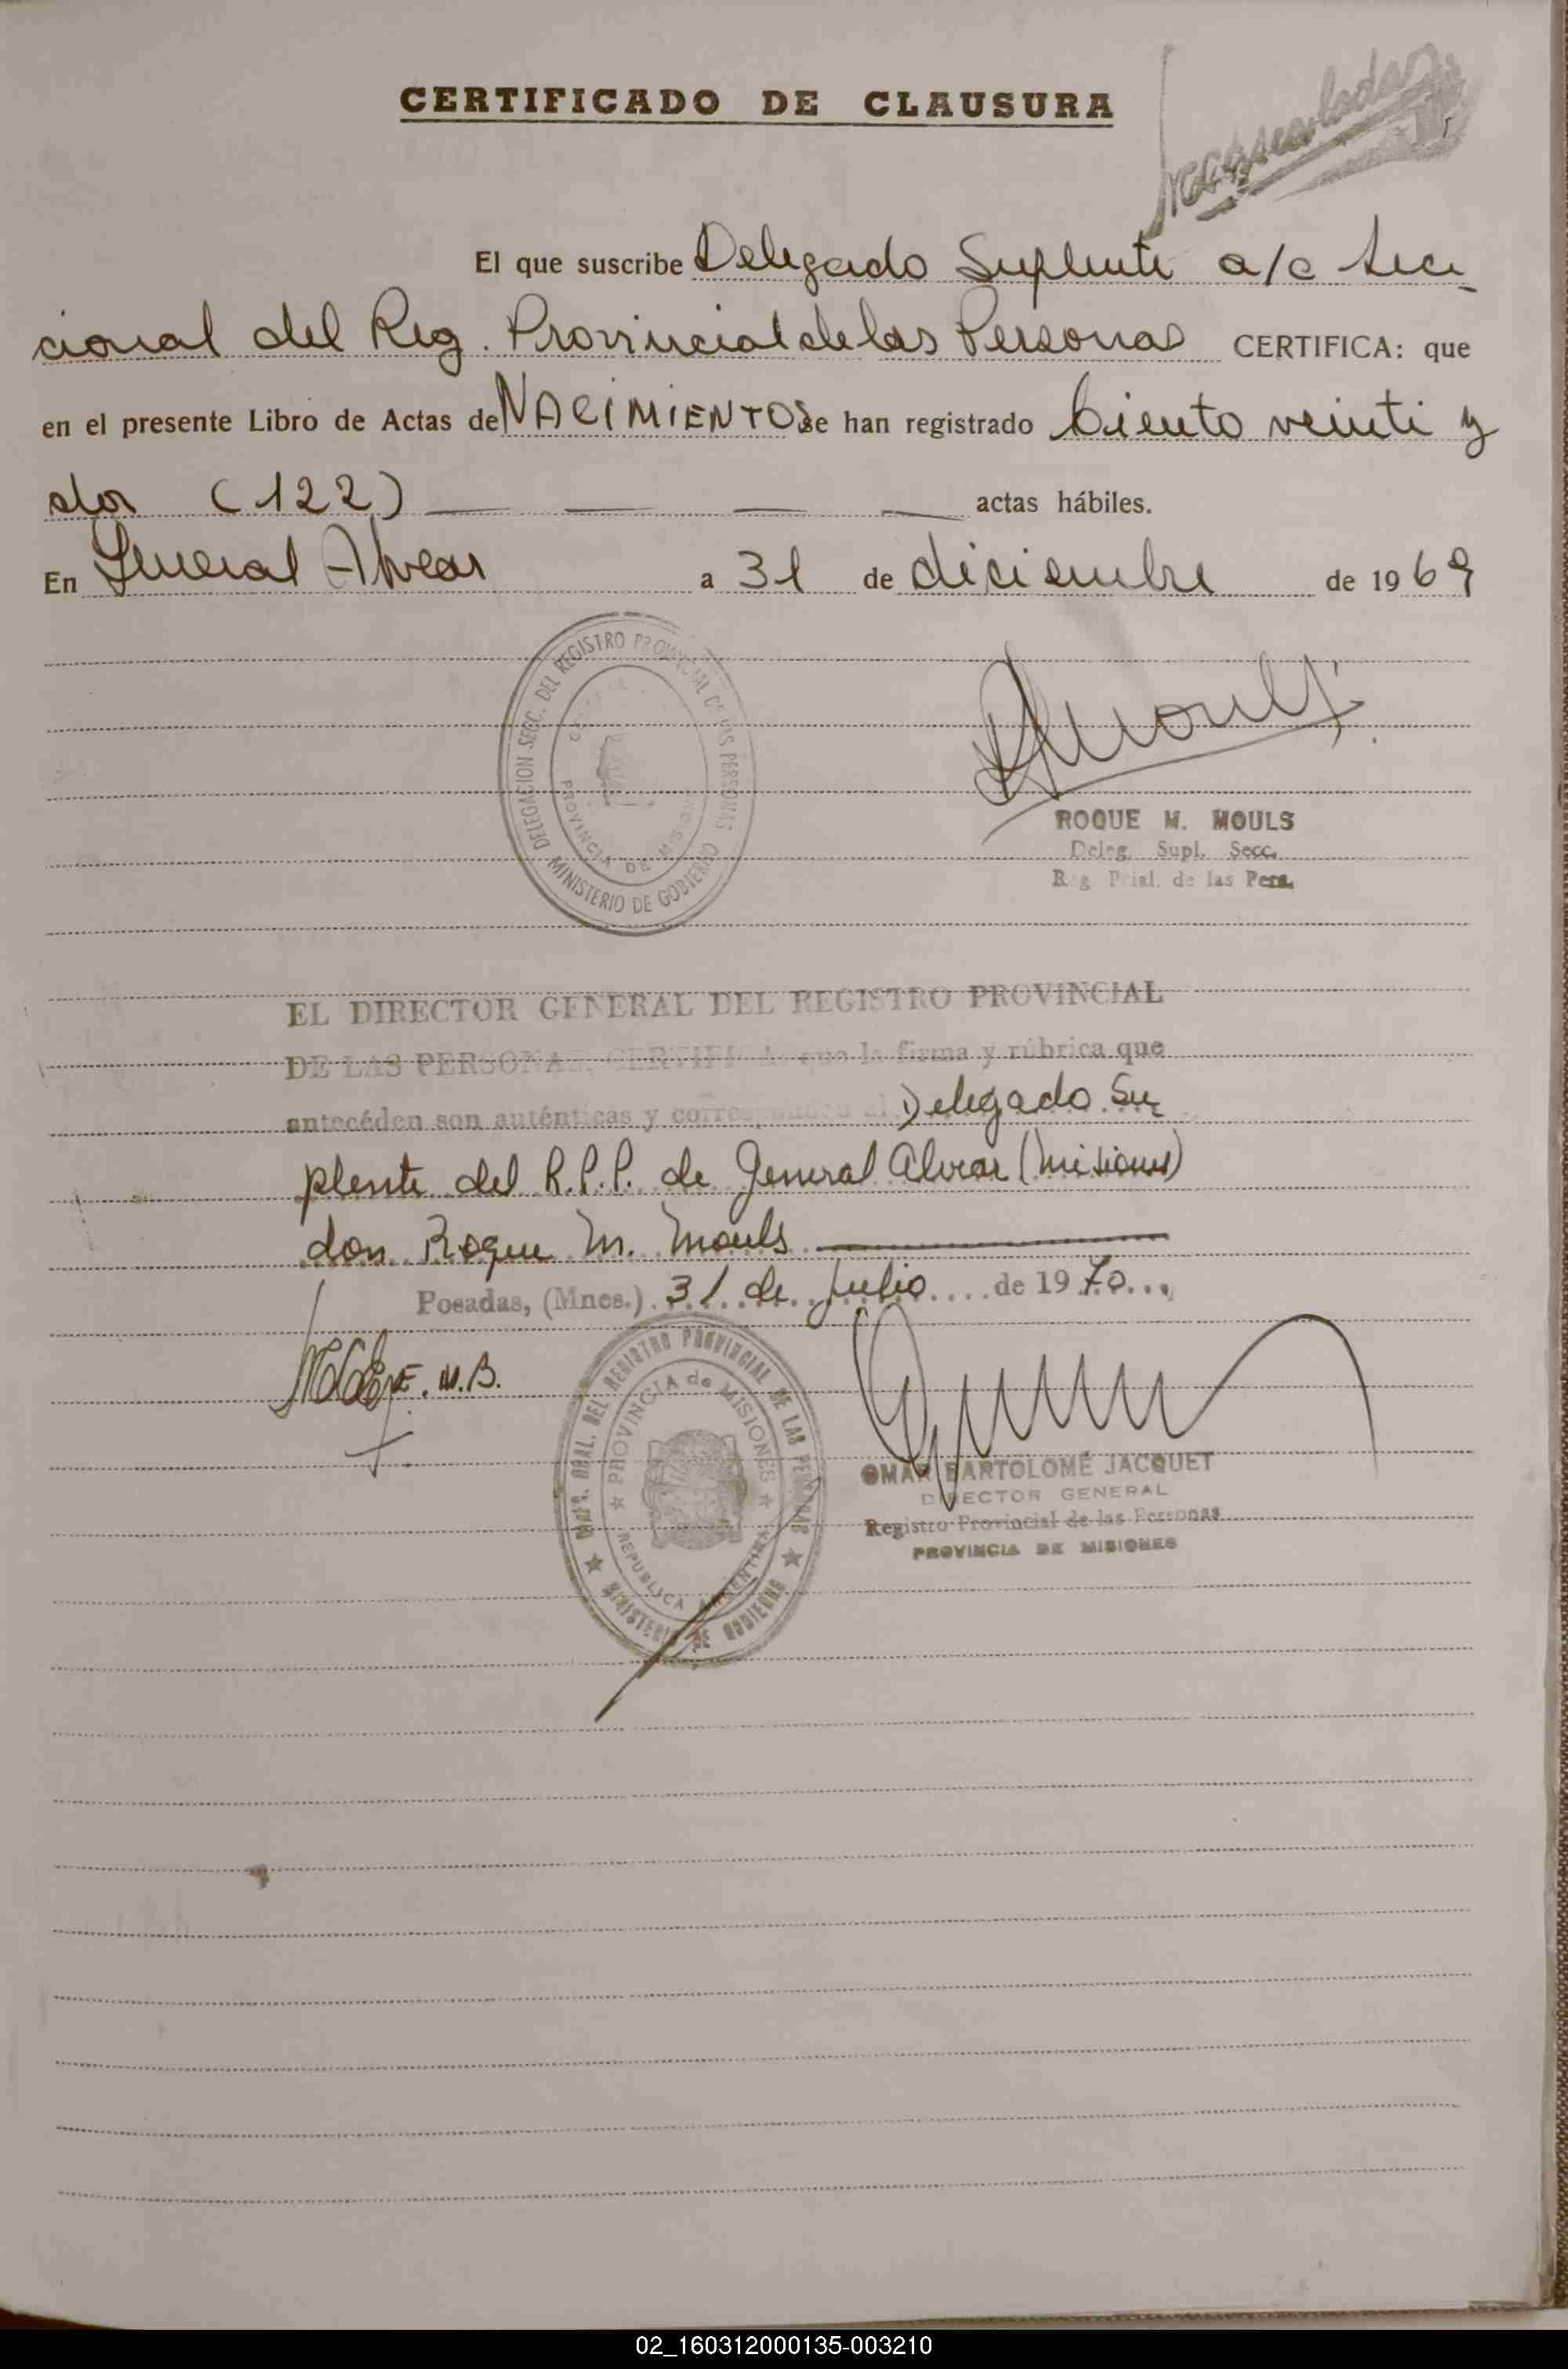 CERTIFICADO DE CLAUSURA
El que suscribe Delegado Suplente a/c Secc
cional del Reg. Provincial de las Personas CERTIFICA: que
en el presente Libro de Actas de NACIMIENTOS se han registrado Ciento veinti y
dos (122) — — — — actas hábiles.
En General Alvear a 31 de diciembre de 1969
DELEGACION SECC. DEL REGISTRO PROVINCIAL DE LAS PERSONAS
PROVINCIA DE MISIONES
MINISTERIO DE GOBIERNO
ROQUE M. MOULS
Deleg. Supl. Secc.
Reg Pcial. de las Pers.
EL DIRECTOR GENERAL DEL REGISTRO PROVINCIAL
DE LAS PERSONAS, CERTIFICA: que la firma y rúbrica que
antecéden son auténticas y corresponden al Delegado Su
plente del R.P.P. de General Alvear (Misiones)
don Roque M. Mouls
Posadas, (Mnes.) 31 de Julio de 1970
E. M. B.
DIREC. GRAL. DEL REGISTRO PROVINCIAL DE LAS PERSONAS
PROVINCIA de MISIONES
REPUBLICA ARGENTINA
MINISTERIO DE GOBIERNO
OMAR BARTOLOMÉ JACQUET
DIRECTOR GENERAL
Registro Provincial de las Personas
PROVINCIA DE MISIONES
02_160312000135-003210